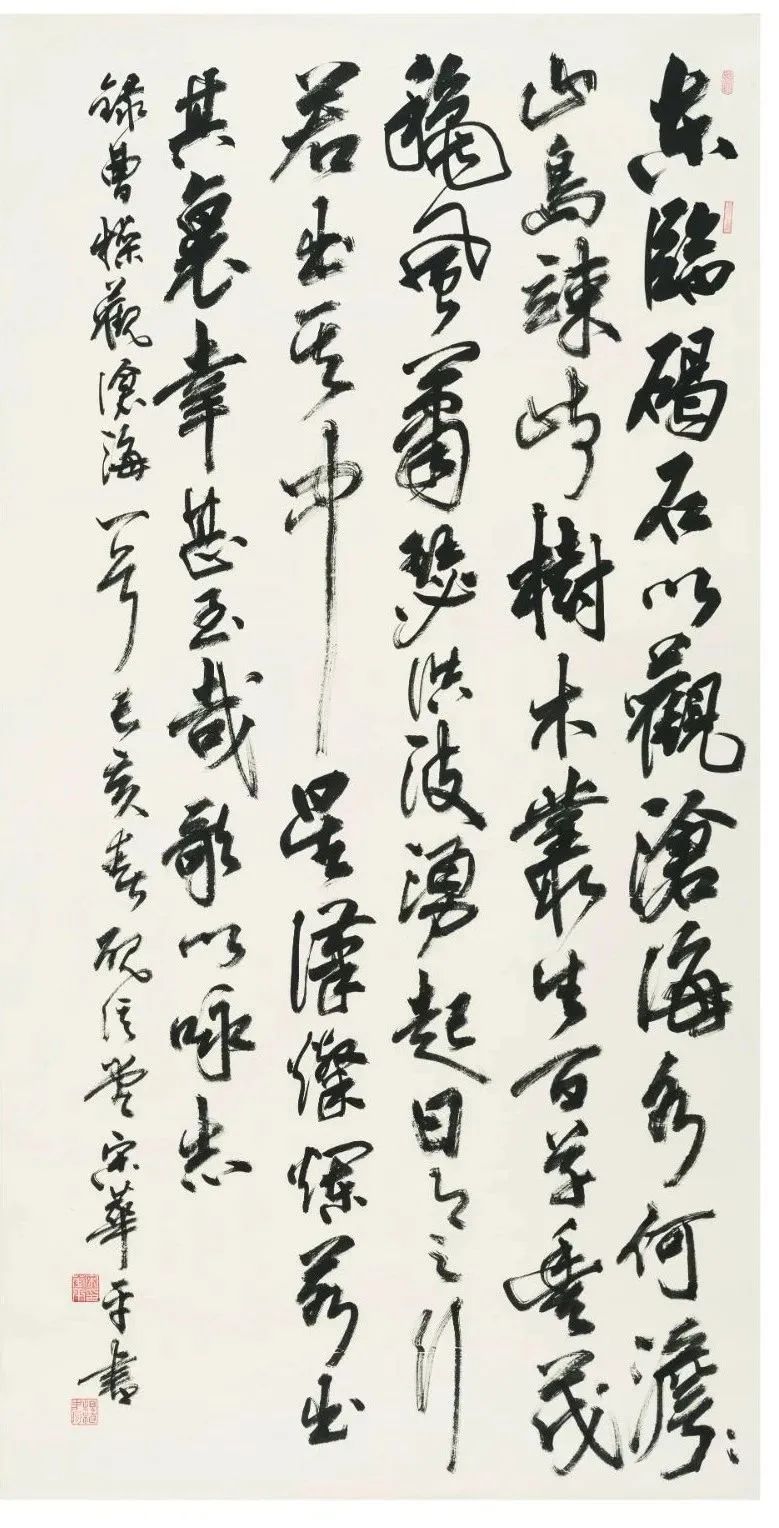 东臨碣石以觀滄海水何澹〻
山島竦峙樹木叢生百草豊茂
穐風蕭瑟洪波湧起日月之行
若出其中星漢燦爛若出
其裏幸甚至哉歌以咏志
錄曹操觀滄海一首己亥春砚 堂宋華平書